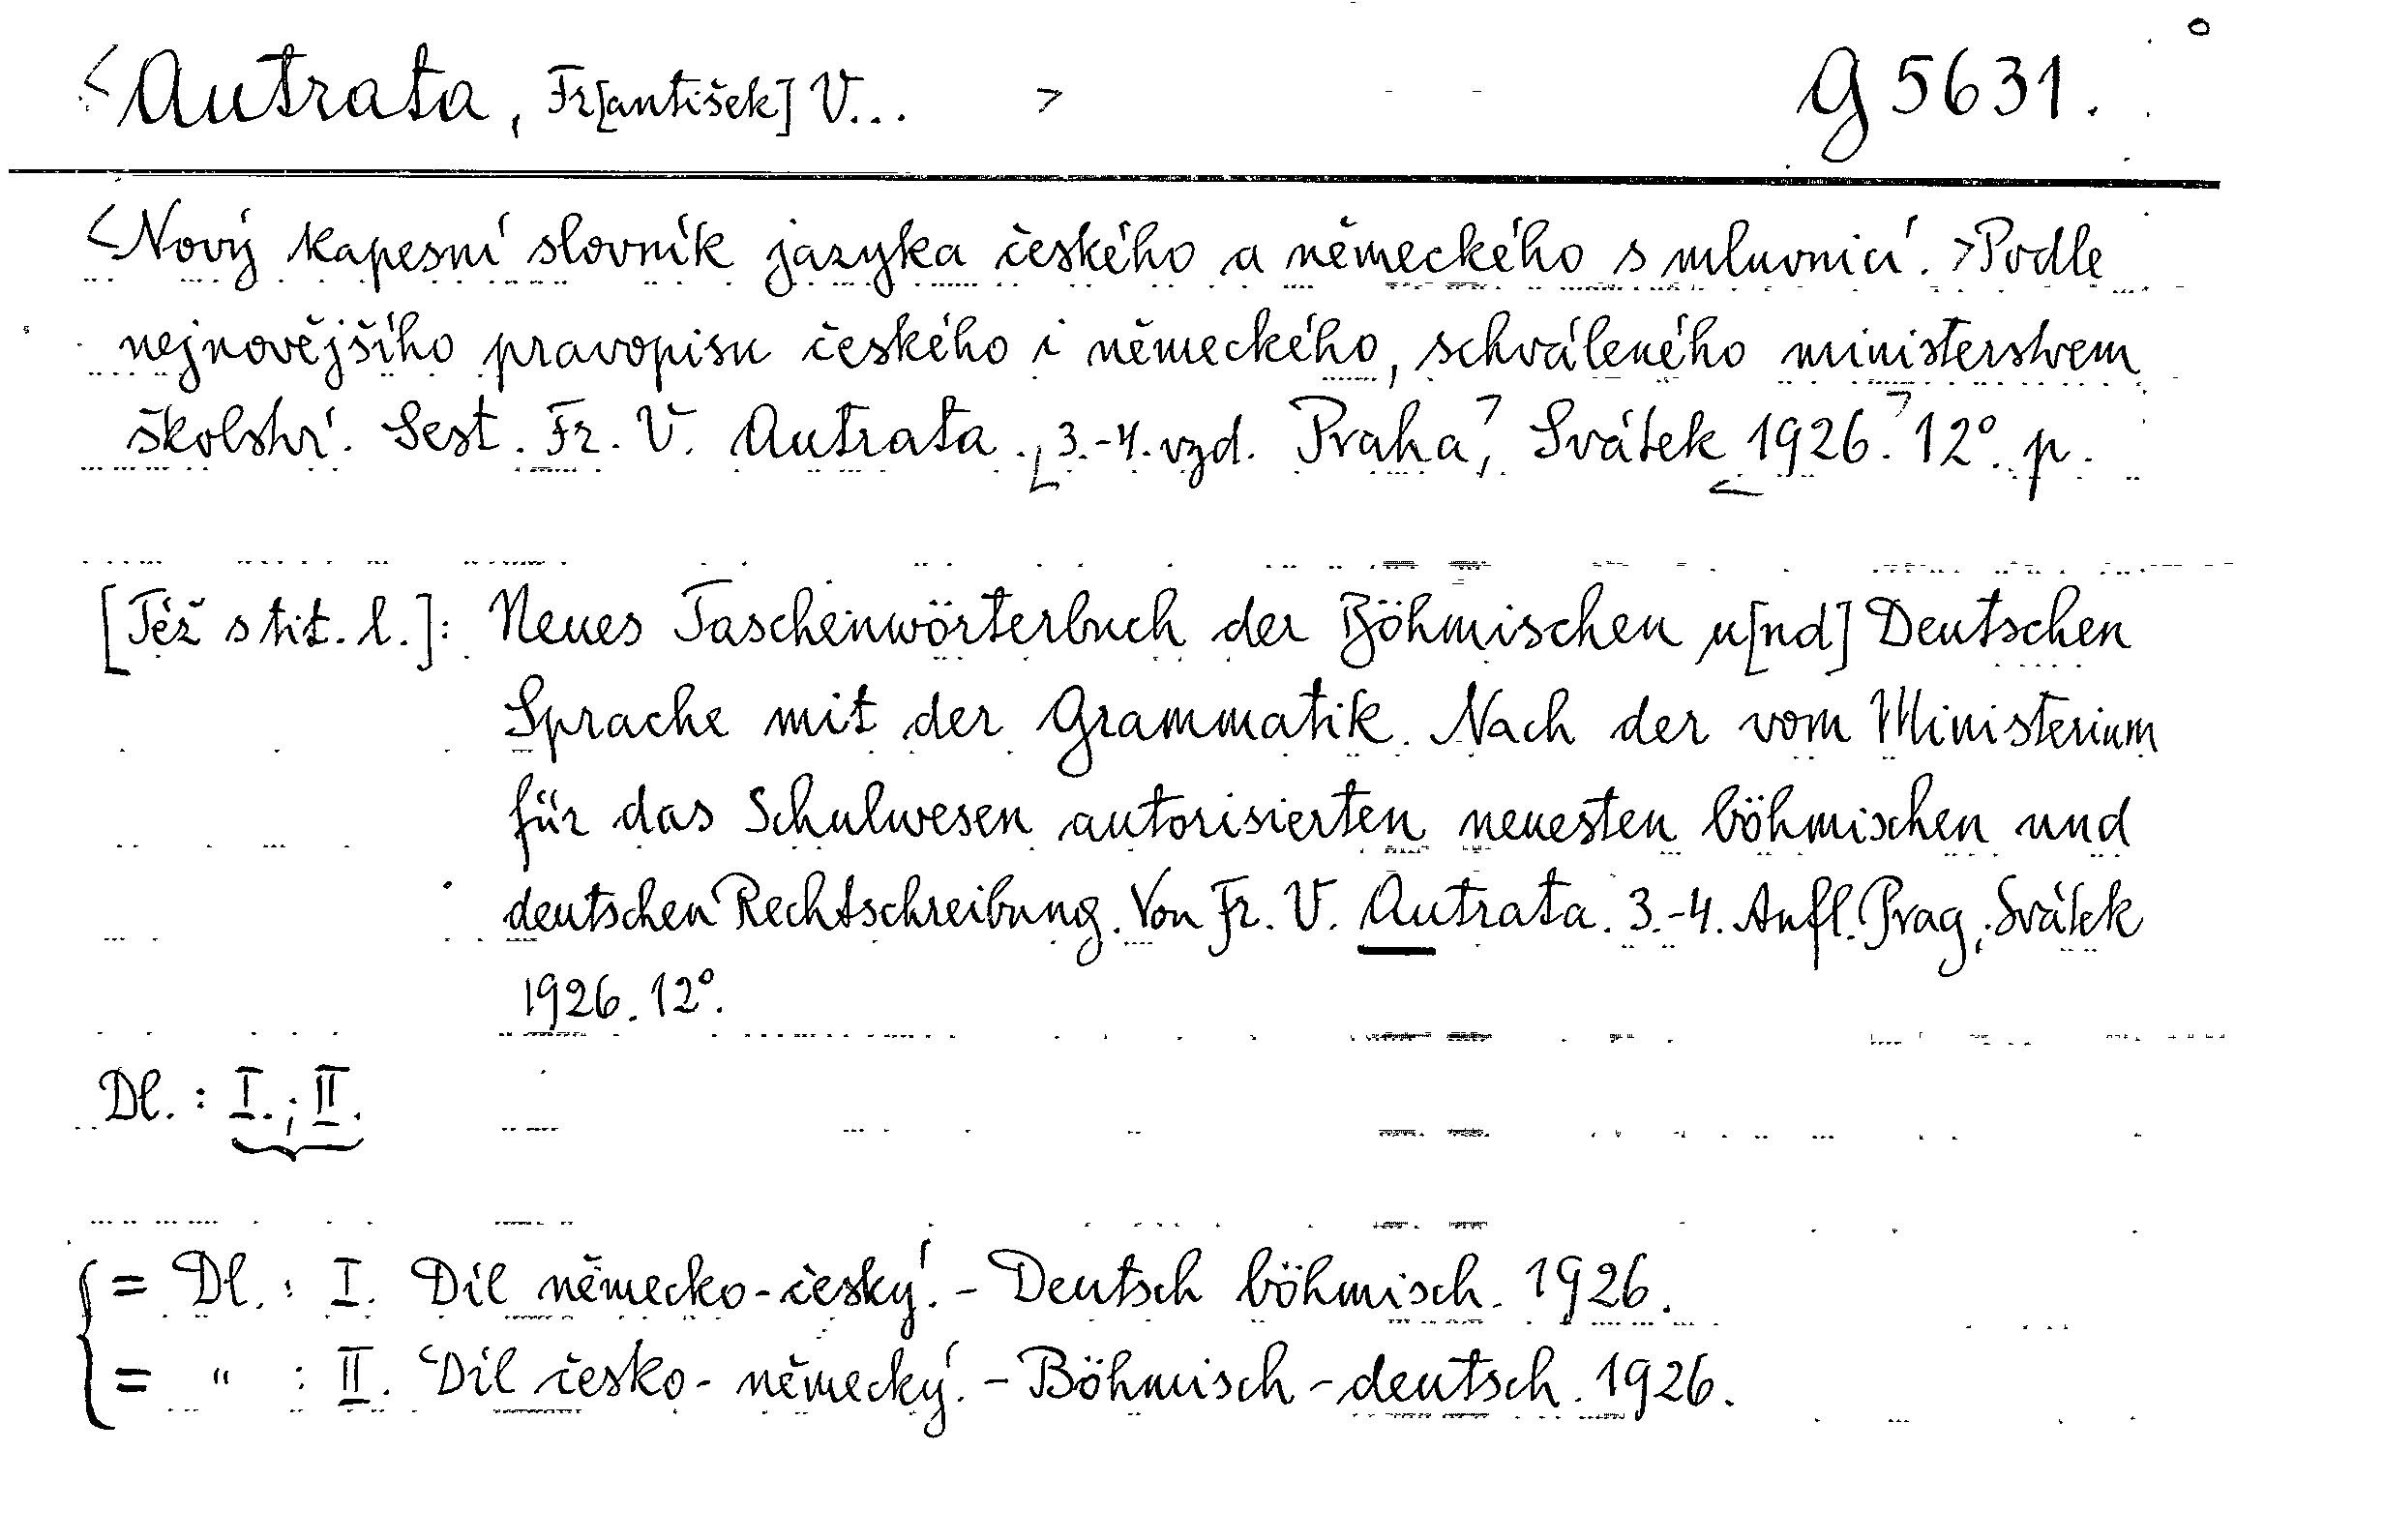 <Autrata, Fr[antišek] V... > G 5631.
<Nový kapesní slovník jazyka českého a německého s mluvnicí. >Podle
nejnovějšího pravopisu českého i německého, schváleného ministerstvem
školství. Sest. Fr. V. Autrata. 3.-4. vyd. Praha, Svátek 1926. 12°. p.
[Též s tit. l.]: Neues Taschenwörterbuch der Böhmischen u[nd] Deutschen
Sprache mit der Grammatik. Nach der vom Ministerium
für das Schulwesen autorisierten neuesten böhmischen und
deutschen Rechtschreibung. Von Fr. V. Autrata. 3.-4. Aufl. Prag, Svátek
1926. 12°.
Dl.: I.; II.
= Dl.: I. Díl německo-český. - Deutsch böhmisch. 1926.
= " : II. Díl česko-německý. - Böhmisch-deutsch. 1926.